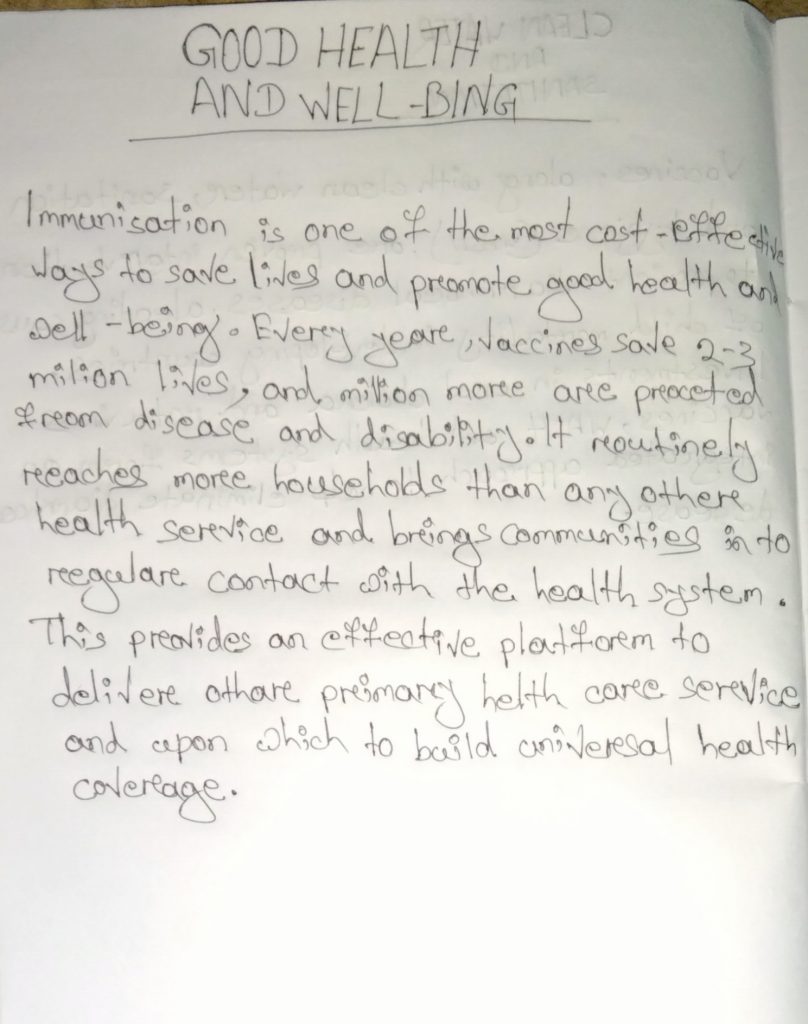 GOOD HEALTH
AND WELL-BING
Immunisation is one of the most cost-effective
ways to save lives and promote good health and
well-being. Every year, vaccines save 2-3
milion lives, and million more are proceted
from disease and disability. It routinely
reaches more households than any other
health service and brings communities in to
regular contact with the health system.
This provides an effective platform to
deliver othar primary helth care service
and upon which to build universal health
coverage.